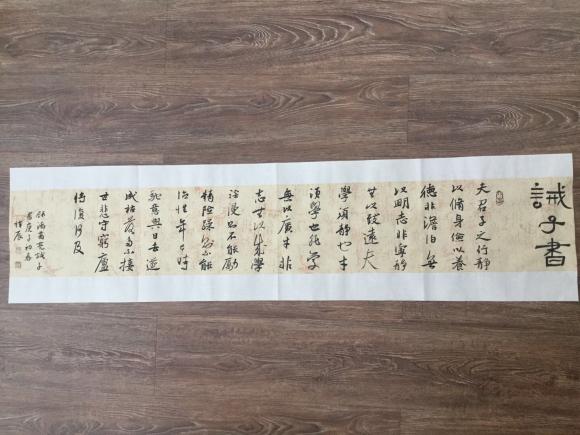 誡子書
夫君子之行靜
以脩身儉以養
德非澹泊無
以明志非寧靜
无以致遠夫
學須靜也才
須學也非學
無以廣才非
志无以成學
淫慢則不能勵
精險躁則不能
治性年與時
馳意與日去遂
成枯落多不接
世悲守窮廬
將復何及
諸葛亮誡子
書庚子初春